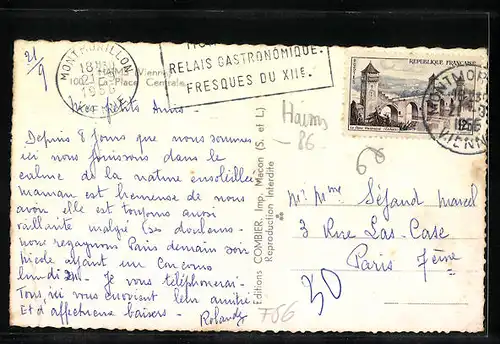 21/9
MONTMORILLON
18H
21-9
1956
VIENNE
RELAIS GASTRONOMIQUE.
FRESQUES DU XIIE.
REPUBLIQUE FRANÇAISE
HAIMS (Vienne)
La Place Centrale
Mes petits amis -
Haims
- 86
Depuis 8 jours que nous sommes
ici nous jouissons dans le
calme de la nature ensoleillée
maman est heureuse de nous
avoir elle est toujours aussi
vaillante malgré ses douleurs -
nous regagnons Paris demain soir
ayant un concours
lundi - Je vous téléphonerai -
Tous ici vous envoient leur amitié
Et d'affectueux baisers -
Editions COMBIER, Imp. Macon (S. et L.)
Reproduction Interdite
Mr Mme Séjaud Marcel
3 Rue Las-Case
Paris 7ème
50
756